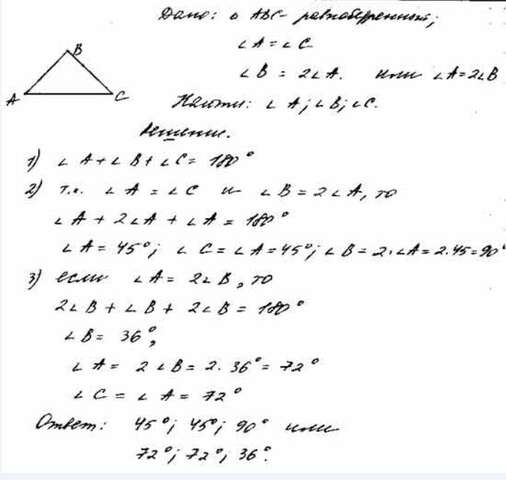 Дано: △ ABC - равнобедренный;
∠A = ∠C
∠B = 2∠A. или ∠A = 2∠B
Найти: ∠A; ∠B; ∠C.
B
A
C
Решение.
1) ∠A + ∠B + ∠C = 180°
2) т.к. ∠A = ∠C и ∠B = 2∠A, то
∠A + 2∠A + ∠A = 180°
∠A = 45°; ∠C = ∠A = 45°; ∠B = 2·∠A = 2·45 = 90°
3) если ∠A = 2∠B, то
2∠B + ∠B + 2∠B = 180°
∠B = 36°,
∠A = 2∠B = 2·36° = 72°
∠C = ∠A = 72°
Ответ: 45°; 45°; 90° или
72°; 72°; 36°.